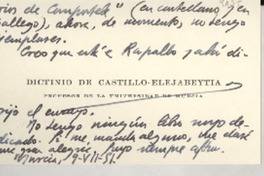 rios de Compostela" (en castellano y en
gallego), ahora, de momento, no tengo
ejemplares.
Creo que esté Rapallo y ahí di-
DICTINIO DE CASTILLO-ELEJABEYTIA
PROFESOR DE LA UNIVERSIDAD DE MURCIA
rijo el
No tengo ningún libro suyo de-
dicado. Si me manda alguno, me dará
una gran alegría. Suyo siempre affmo.
Murcia, 9-VII-51.